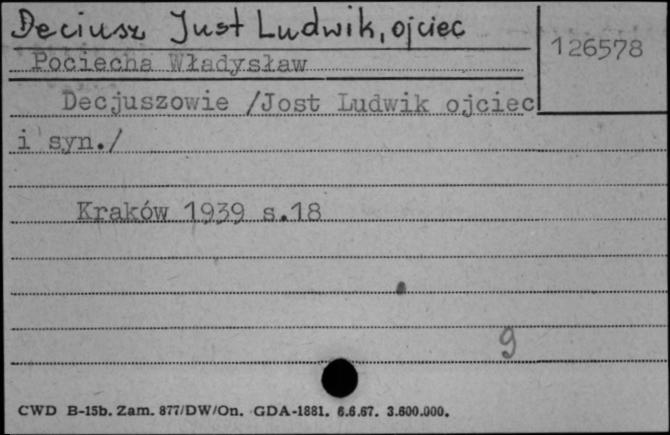 Deciusz Just Ludwik, ojciec
126578
Pociecha Władysław
Decjuszowie /Jost Ludwik ojciec
i syn./
Kraków 1939 s.18
9
CWD B-15b. Zam. 877/DW/On. GDA-1881. 6.6.67. 3.600.000.